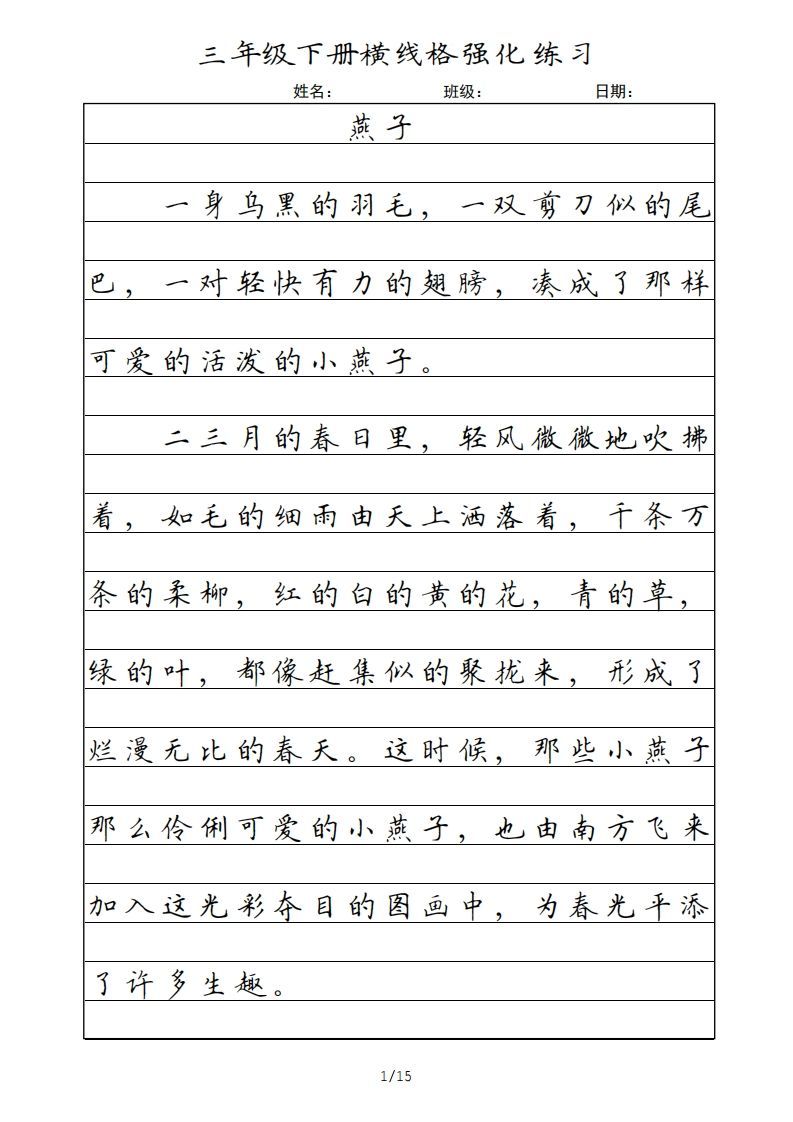 三年级下册横线格强化练习
姓名： 班级： 日期：
燕子
一身乌黑的羽毛，一双剪刀似的尾
巴，一对轻快有力的翅膀，凑成了那样
可爱的活泼的小燕子。
二三月的春日里，轻风微微地吹拂
着，如毛的细雨由天上洒落着，千条万
条的柔柳，红的白的黄的花，青的草，
绿的叶，都像赶集似的聚拢来，形成了
烂漫无比的春天。这时候，那些小燕子
那么伶俐可爱的小燕子，也由南方飞来
加入这光彩夺目的图画中，为春光平添
了许多生趣。
1/15